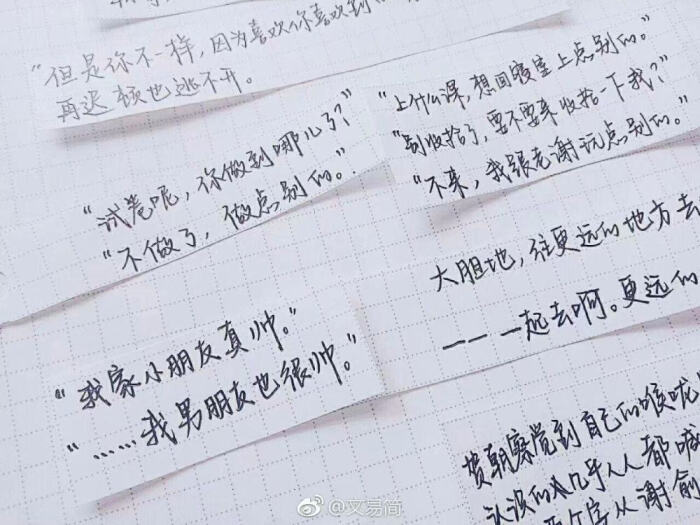 "但是你不一样,因为喜欢你喜欢到
再迟顿也逃不开。
"上什么课,想回寝室上点别的。"
"别收拾了,要不要来收拾一下我?"
"不来,我跟老谢玩点别的。"
"试卷呢,你做到哪儿了?"
"不做了,做点别的。"
大胆地,往更远的地方去
———一起去啊。更远的
"我家小朋友真帅。"
"……我男朋友也很帅。"
贺朝察觉到自己的喉咙
认识的人几乎人人都喊
个字从谢俞
@文易简